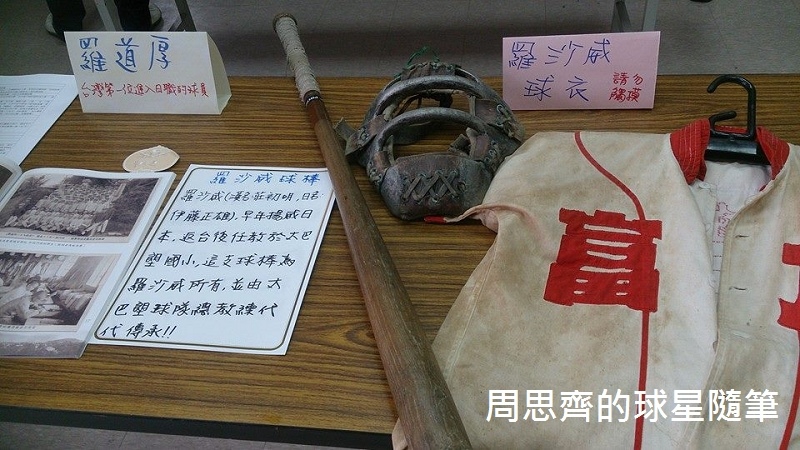 羅道厚
台灣第一位進入日職的球員
羅沙威
球衣
請勿
觸摸
羅沙威球棒
羅沙威(漢名:莊初明,日名:
伊藤正雄),早年揚威日
本,返台後任教於大巴
塱國小,這支球棒為
羅沙威所有,並由太
巴塱球隊總教練代
代傳承!!
富
周思齊的球星隨筆